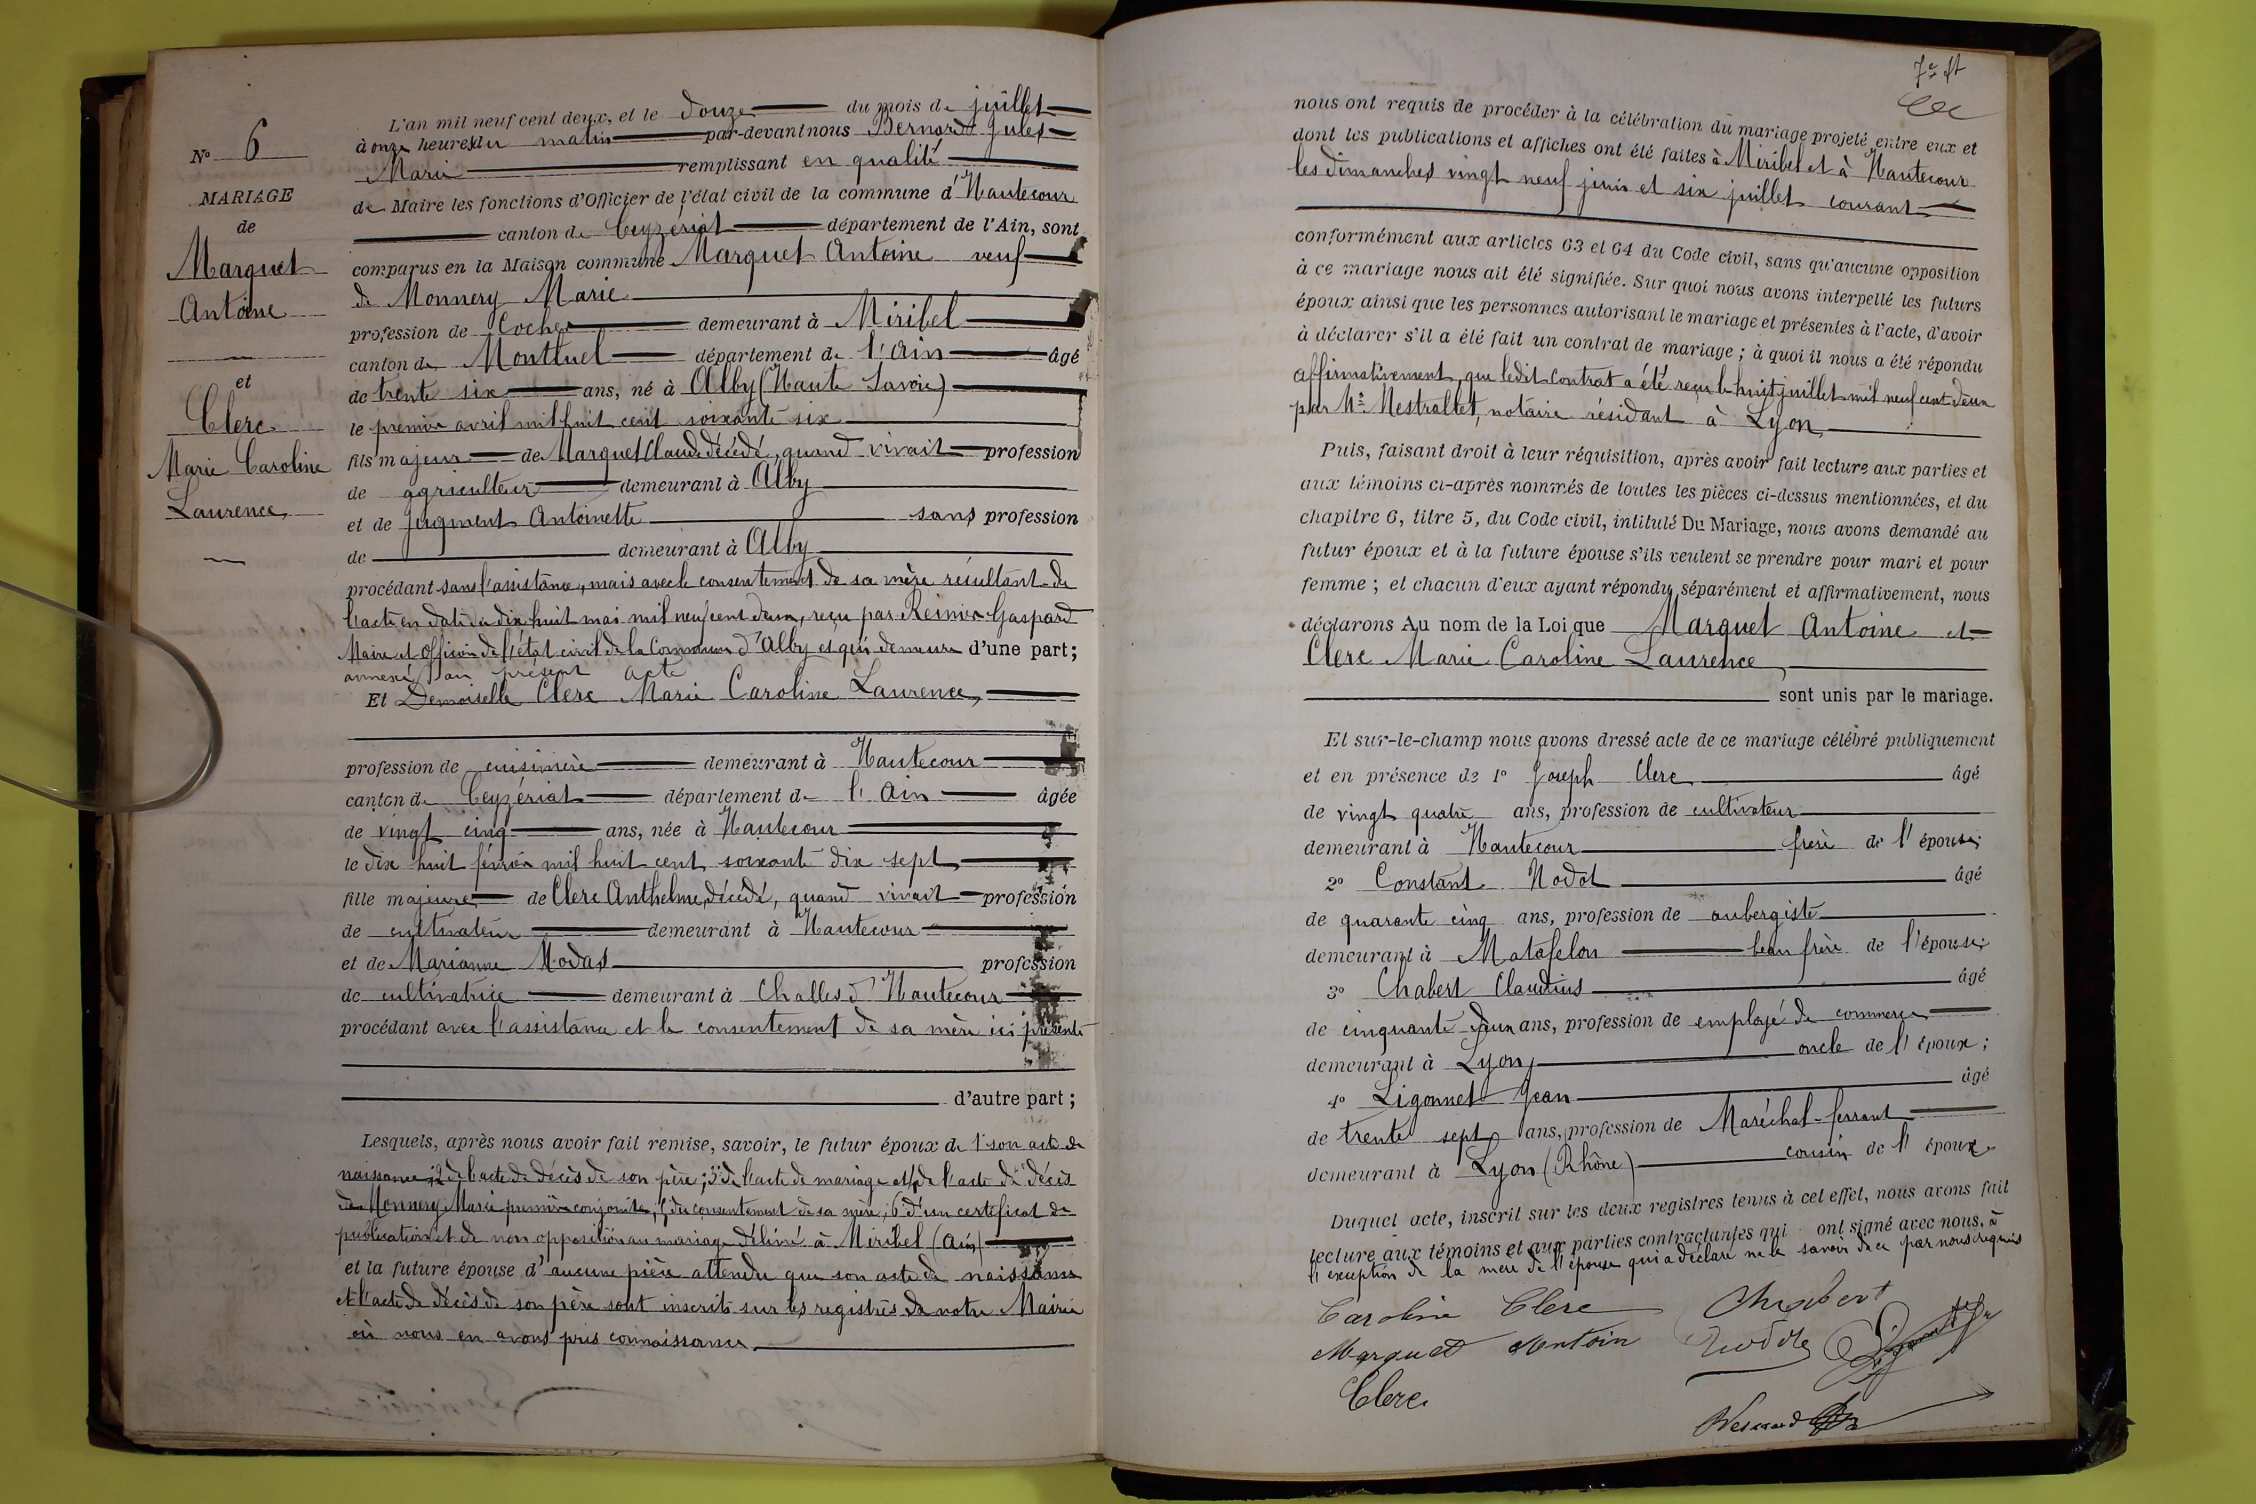 N° 6
MARIAGE
de
Marquet
Antoine
et
Clerc
Marie Caroline
Laurence
L'an mil neuf cent deux, et le douze du mois de juillet
à onze heures du matin par-devant nous Bernard Jules
Marie remplissant en qualité
de Maire les fonctions d'Officier de l'état civil de la commune d'Hautecour
canton de Ceyzériat département de l'Ain, sont
comparus en la Maison commune Marquet Antoine veuf
de Monnery Marie
profession de Cocher demeurant à Miribel
canton de Montluel département de l'Ain âgé
de trente six ans, né à Alby (Haute Savoie)
le premier avril mil huit cent soixante six
fils majeur de Marquet Claude décédé, quand vivait profession
de agriculteur demeurant à Alby
et de Antoinette sans profession
de demeurant à Alby
procédant sans l'assistance, mais avec le consentement de sa mère résultant de
l'acte en date du dix huit mai mil neuf cent deux, reçu par Gaspard
Maire et Officier de l'état civil de la Commune d'Alby et qui demeure d'une part;
annexé au présent acte
Et Demoiselle Clerc Marie Caroline Laurence,
profession de cuisinière demeurant à Hautecour
canton de Ceyzériat département de l'Ain âgée
de vingt cinq ans, née à Hautecour
le dix huit février mil huit cent soixante dix sept
fille majeure de Clerc Anthelme, décédé, quand vivait profession
de cultivateur demeurant à Hautecour
et de Marianne Modas profession
de cultivatrice demeurant à Challes d'Hautecour
procédant avec l'assistance et le consentement de sa mère ici présente
d'autre part;
Lesquels, après nous avoir fait remise, savoir, le futur époux de 1° son acte de
naissance; 2° de l'acte de décès de son père; 3° de l'acte de mariage et 4° de l'acte de décès
de Monnery Marie première conjointe, 5° du consentement de sa mère; 6° d'un certificat de
publication et de non opposition au mariage délivré à Miribel (Ain)
et la future épouse d'aucune pièce attendu que son acte de naissance
et l'acte de décès de son père sont inscrits sur les registres de notre Mairie
où nous en avons pris connaissance
nous ont requis de procéder à la célébration du mariage projeté entre eux et
dont les publications et affiches ont été faites à Miribel et à Hautecour
les dimanches vingt neuf juin et six juillet courant
conformément aux articles 63 et 64 du Code civil, sans qu'aucune opposition
à ce mariage nous ait été signifiée. Sur quoi nous avons interpellé les futurs
époux ainsi que les personnes autorisant le mariage et présentes à l'acte, d'avoir
à déclarer s'il a été fait un contrat de mariage; à quoi il nous a été répondu
affirmativement, que ledit contrat a été reçu le huit juillet mil neuf cent deux
par Me Mestrallet, notaire résidant à Lyon
Puis, faisant droit à leur réquisition, après avoir fait lecture aux parties et
aux témoins ci-après nommés de toutes les pièces ci-dessus mentionnées, et du
chapitre 6, titre 5, du Code civil, intitulé Du Mariage, nous avons demandé au
futur époux et à la future épouse s'ils veulent se prendre pour mari et pour
femme; et chacun d'eux ayant répondu séparément et affirmativement, nous
déclarons Au nom de la Loi que Marquet Antoine et
Clerc Marie Caroline Laurence,
sont unis par le mariage.
Et sur-le-champ nous avons dressé acte de ce mariage célébré publiquement
et en présence de 1° Joseph Clerc âgé
de vingt quatre ans, profession de cultivateur
demeurant à Hautecour frère de l'épouse;
2° Constant Nodot âgé
de quarante cinq ans, profession de aubergiste
demeurant à Matafelon beau frère de l'épouse;
3° Chabert Claudius âgé
de cinquante deux ans, profession de employé de commerce
demeurant à Lyon, oncle de l'époux;
4° Ligonnet Jean âgé
de trente sept ans, profession de Maréchal-ferrant
demeurant à Lyon (Rhône) cousin de l'époux
Duquel acte, inscrit sur les deux registres tenus à cet effet, nous avons fait
lecture aux témoins et aux parties contractantes qui ont signé avec nous, à
l'exception de la mère de l'épouse qui a déclaré ne le savoir de ce par nous requis
Caroline Clerc Chabert
Marquet Antoin
Clerc
Bernard